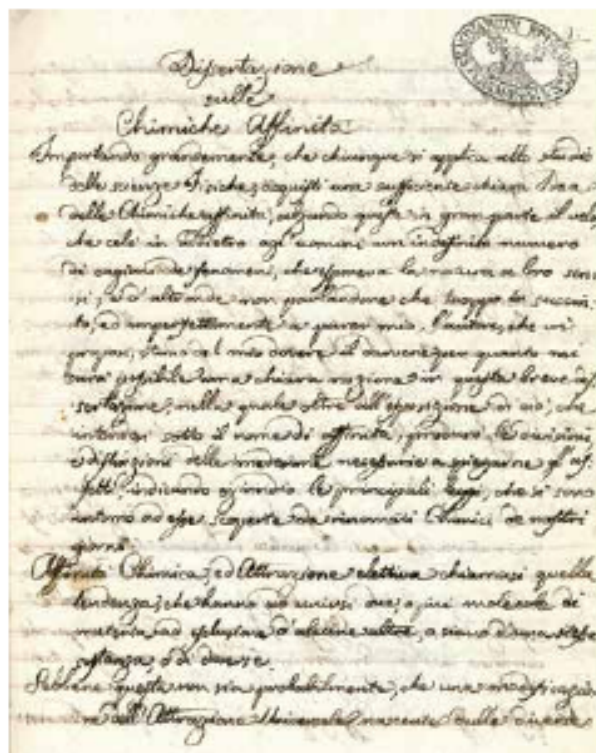 Dissertazione
sulle
Chimiche Affinità
Importando grandemente, che chiunque si applica allo studio
delle scienze Fisiche, acquisti una sufficiente chiara Idea
delle Chimiche affinità, alzando queste in gran parte il velo
che cela in dietro agl'uomini un indefinito numero
di cagioni de fenomeni, che la natura a loro sen
si, e d'altronde non parlandone che troppo succin
to, ed imperfettamente a parer mio, l'autore, che mi
proposi, stimai del mio dovere il darvene per quanto mi
sarà possibile una chiara nozione in questa breve dis
sertazione, nella quale oltre all'esposizione di ciò, che
intendesi sotto il nome di affinità, le divisioni
e distinzioni delle medesime necessarie a spiegarne gl'ef
fetti, indicando le principali leggi, che si sono
intorno ad esse scoperte da rinomati Chimici de nostri
giorni.
Affinità Chimica, ed Attrazione elettiva chiamasi quella
tendenza, che hanno ad unirsi due, o più molecole di
materia ad esclusione d'alcune altre, o siano d'una stessa
sostanza, o di diverse.
Sebbene questa non sia probabilmente, che una modificazio
ne dell'Attrazione Universale nascente dalle diverse